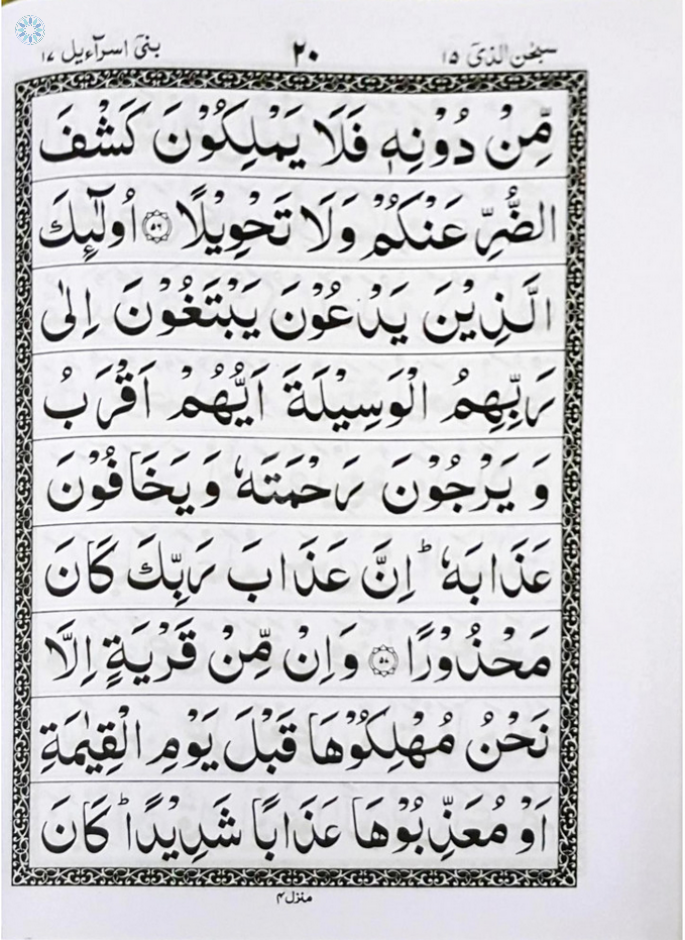 سبحٰن الذی ۱۵
۲۰
بنیٓ اسرآءیل ۱۷
مِّنْ دُوْنِهٖ فَلَا يَمْلِكُوْنَ كَشْفَ
الضُّرِّ عَنْكُمْ وَلَا تَحْوِيْلًا ۝۵۶ اُولٰٓئِكَ
الَّذِيْنَ يَدْعُوْنَ يَبْتَغُوْنَ اِلٰى
رَبِّهِمُ الْوَسِيْلَةَ اَيُّهُمْ اَقْرَبُ
وَ يَرْجُوْنَ رَحْمَتَهٗ وَيَخَافُوْنَ
عَذَابَهٗ ؕ اِنَّ عَذَابَ رَبِّكَ كَانَ
مَحْذُوْرًا ۝۵۷ وَاِنْ مِّنْ قَرْيَةٍ اِلَّا
نَحْنُ مُهْلِكُوْهَا قَبْلَ يَوْمِ الْقِيٰمَةِ
اَوْ مُعَذِّبُوْهَا عَذَابًا شَدِيْدًا ؕ كَانَ
منزل ۴